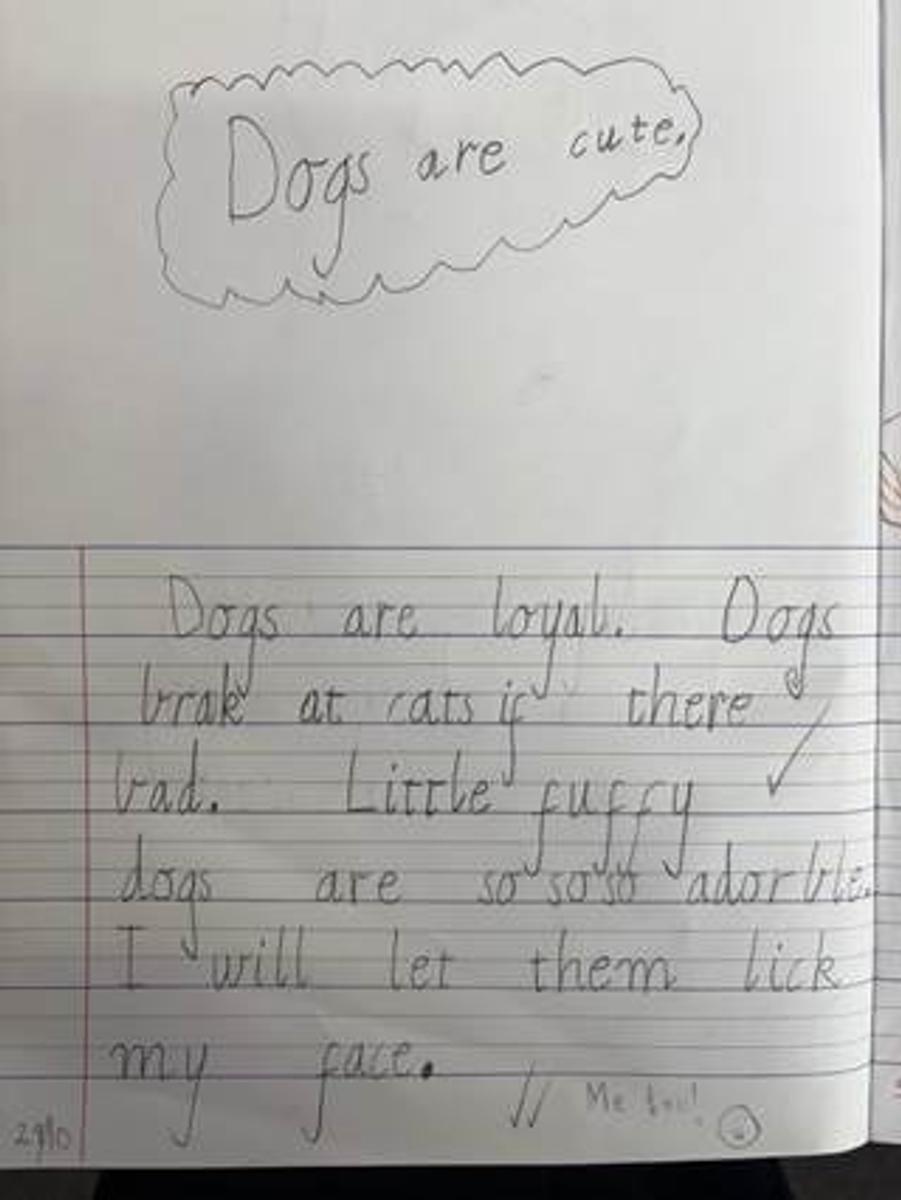 Dogs are cute.
Dogs are loyal. Dogs
brak at cats if there
bad. Little fuffy
dogs are so so so adorble.
I will let them lick
my face.
Me too!
29/10